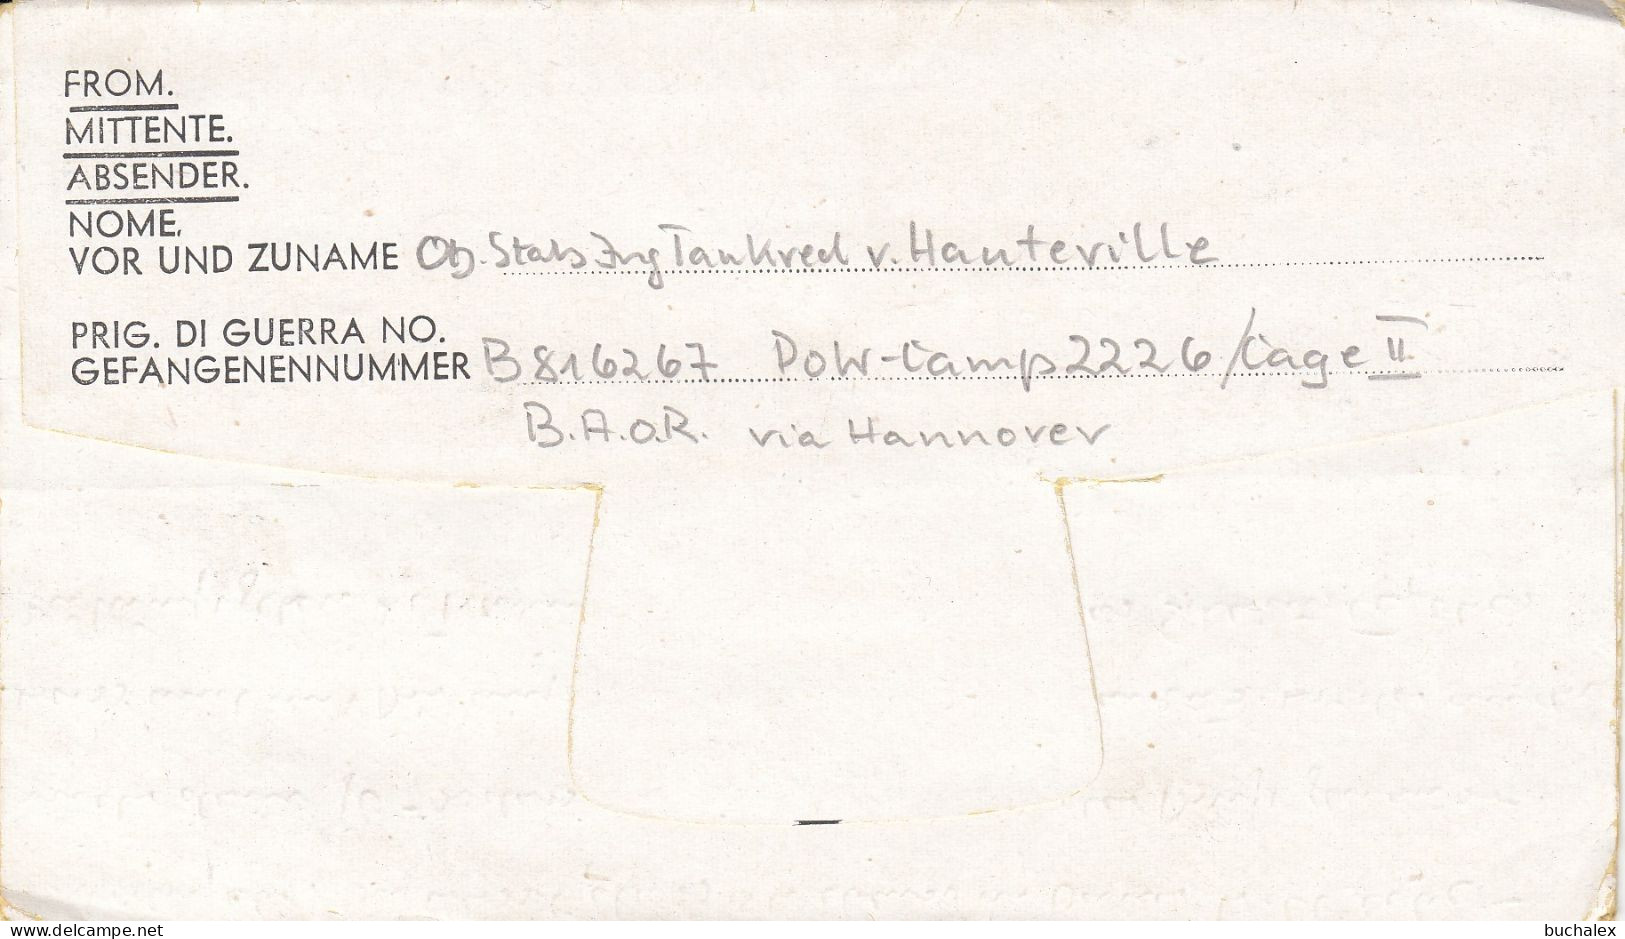 FROM.
MITTENTE.
ABSENDER.
NOME.
VOR UND ZUNAME Ob. Stabs Ing Tankred v. Hauteville
PRIG. DI GUERRA NO.
GEFANGENENNUMMER B816267 PoW-Camp 2226/Cage II
B.A.O.R. via Hannover
delcampe.net
buchalex